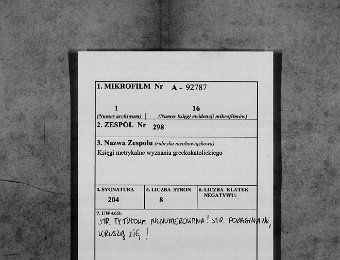 1. MIKROFILM Nr A - 92787
1 16
(Numer archiwum) (Numer księgi ewidencji mikrofilmów)
2. ZESPÓŁ Nr 298
3. Nazwa Zespołu (rubryka nieobowiązkowa)
Księgi metrykalne wyznania greckokatolickiego
4. SYGNATURA 5. LICZBA STRON 6. LICZBA KLATEK NEGATYWU:
204 8
7. UWAGI:
STR. TYTUŁOWA NIENUMEROWANA! STR. POŁAMANE,
KRUSZĄ SIĘ!